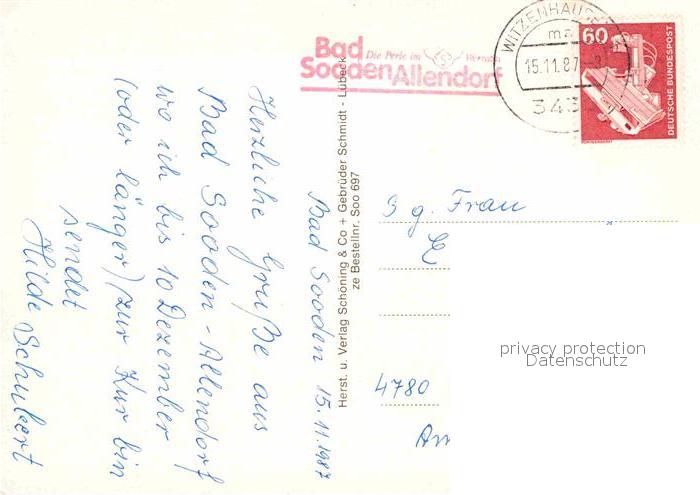 Bad Sooden 15.11.1987
Herzliche Grüße aus
Bad Sooden-Allendorf
wo ich bis 10 Dezember
(oder länger) zur Kur bin
sendet
Hilde Schubert
Herst. u. Verlag Schöning & Co + Gebrüder Schmidt - Lübeck
ze Bestellnr. Soo 697
Bad Die Perle im Werratal
Sooden Allendorf
WITZENHAUSEN
ma
15.11.87-8
343
60
DEUTSCHE BUNDESPOST
g. Frau
4780
privacy protection
Datenschutz